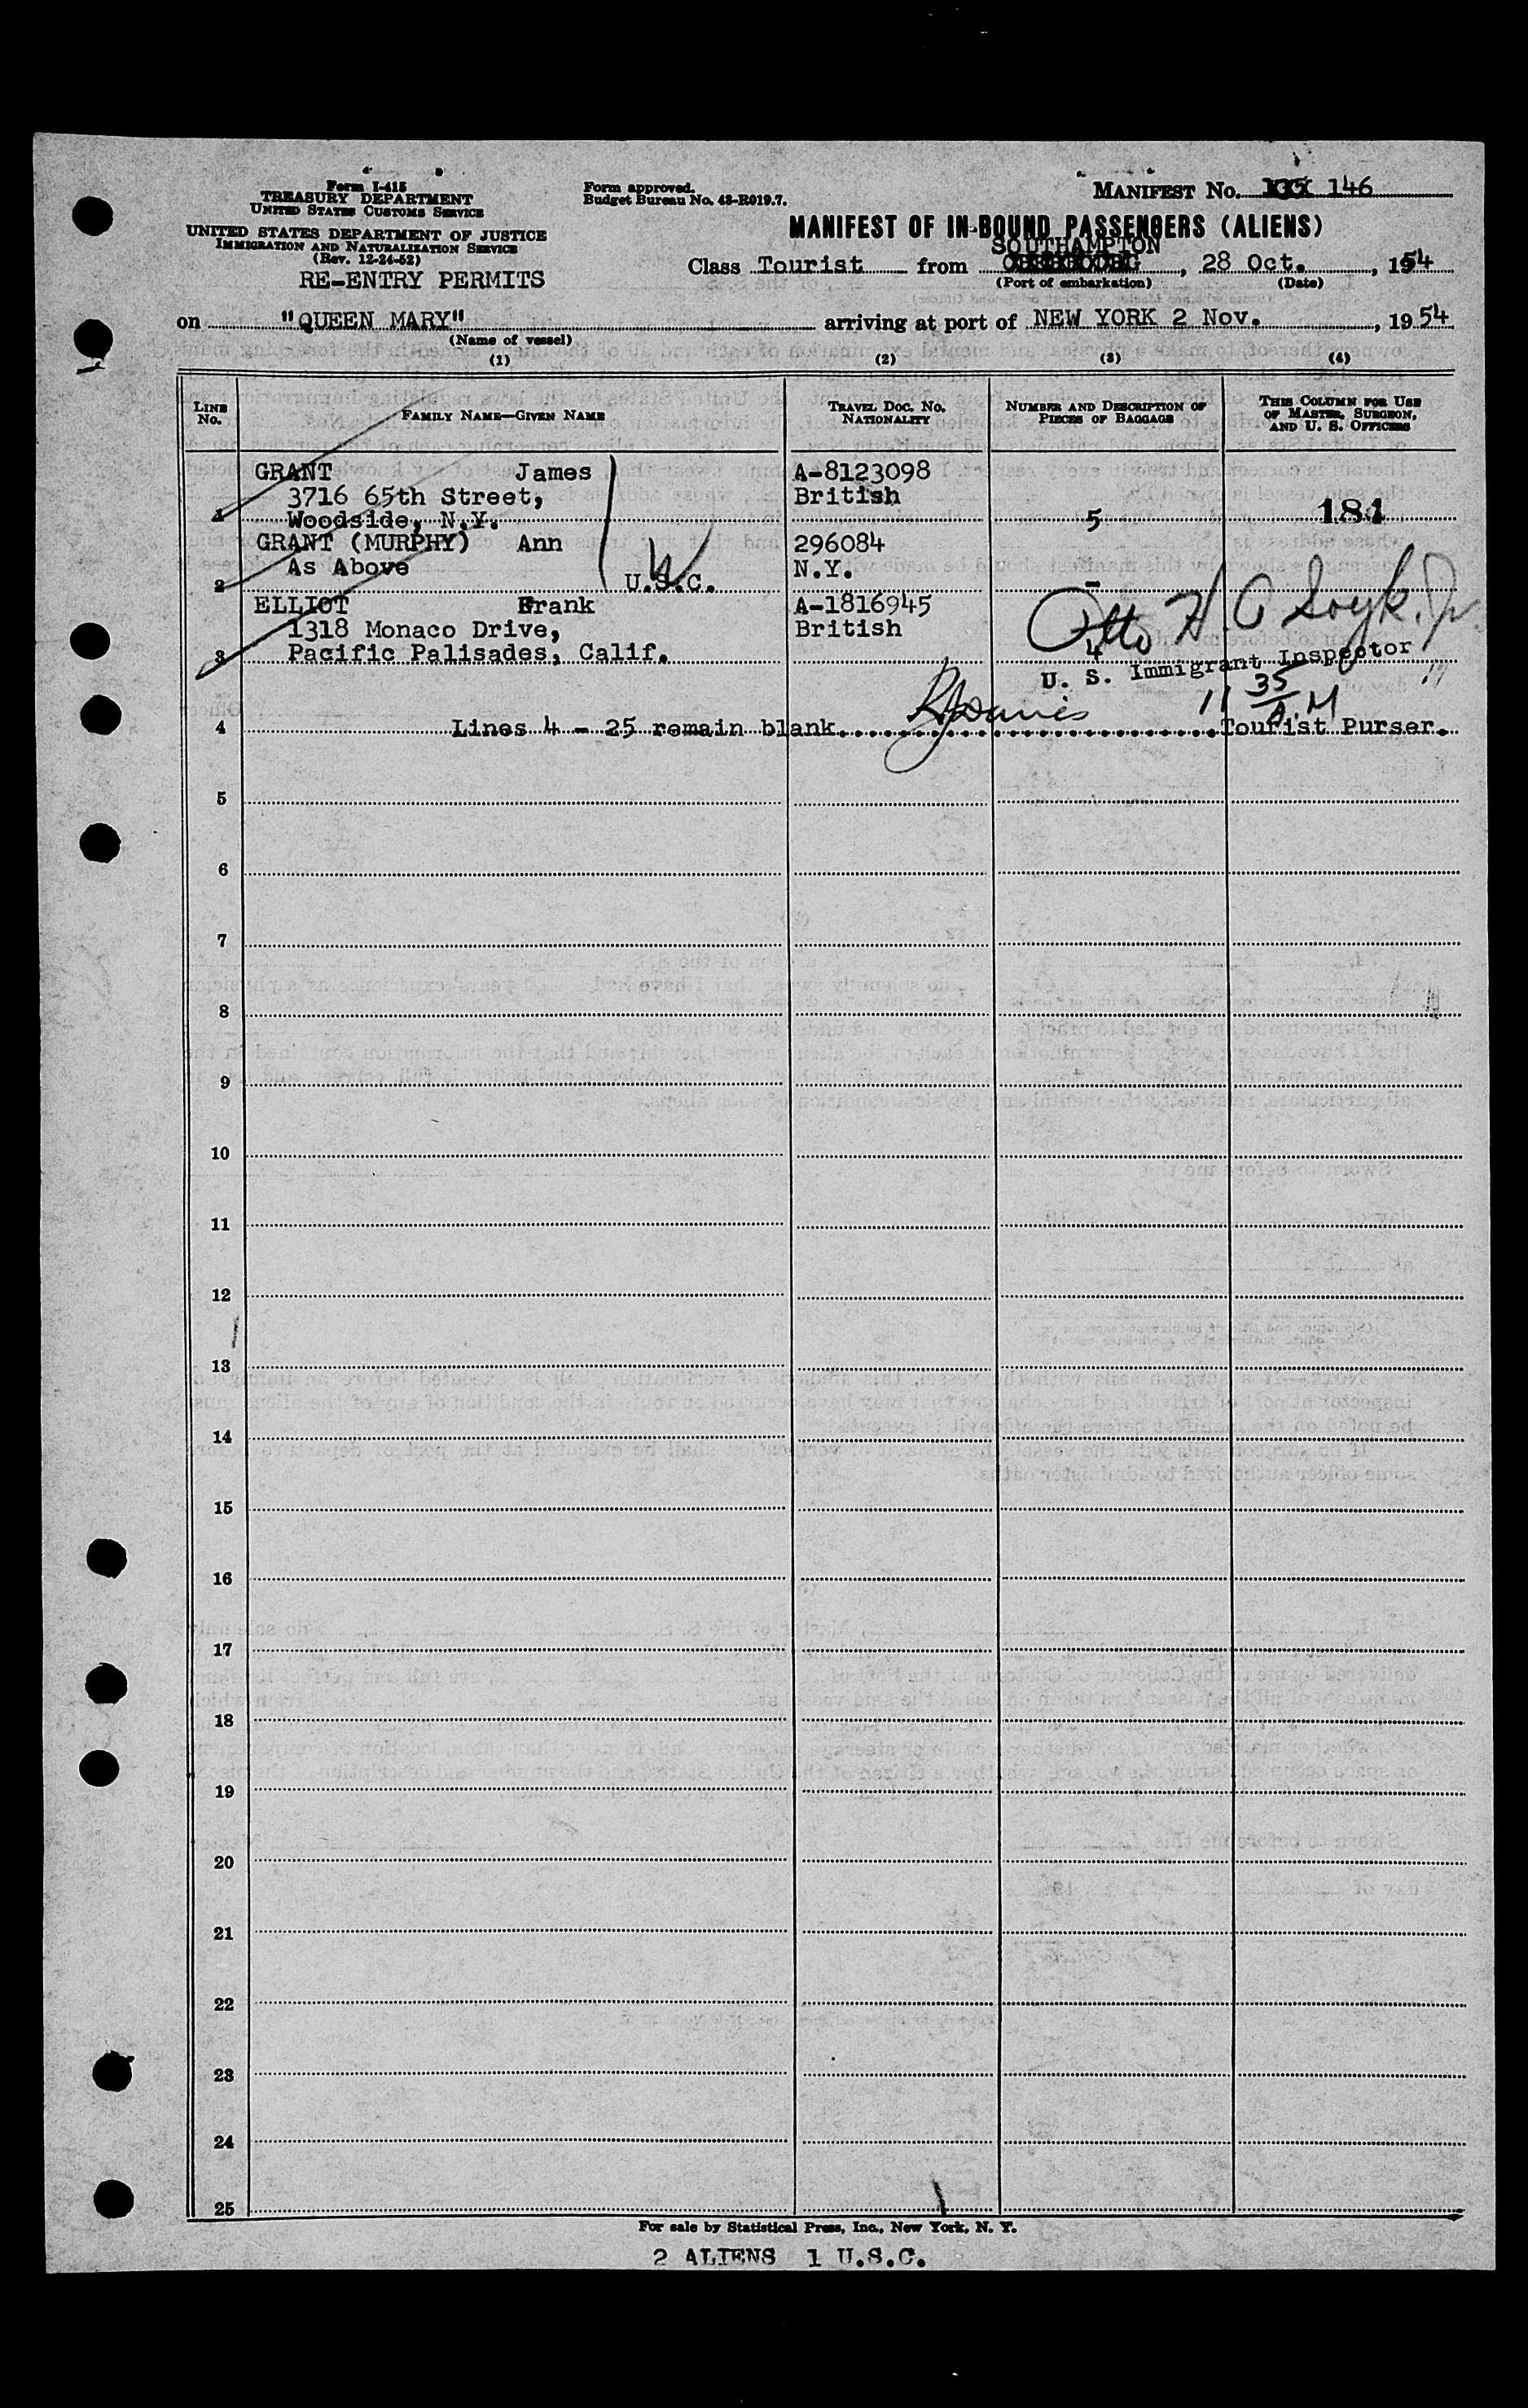 Form I-415
TREASURY DEPARTMENT
UNITED STATES CUSTOMS SERVICE
UNITED STATES DEPARTMENT OF JUSTICE
IMMIGRATION AND NATURALIZATION SERVICE
(Rev. 12-24-52)
RE-ENTRY PERMITS
Form approved.
Budget Bureau No. 43-R019.7.
MANIFEST NO. 146
MANIFEST OF IN-BOUND PASSENGERS (ALIENS)
SOUTHAMPTON
Class Tourist from , 28 Oct. , 1954
(Port of embarkation) (Date)
on "QUEEN MARY" arriving at port of NEW YORK 2 Nov. , 1954
(Name of vessel)
(1) (2) (3) (4)
LINE NO.
FAMILY NAME—GIVEN NAME
TRAVEL DOC. NO.
NATIONALITY
NUMBER AND DESCRIPTION OF
PIECES OF BAGGAGE
THIS COLUMN FOR USE
OF MASTER, SURGEON,
AND U. S. OFFICERS
GRANT James A-8123098
3716 65th Street, British
1 Woodside, N.Y. 5 181
GRANT (MURPHY) Ann 296084
As Above N.Y.
2 U.S.C. -
ELLIOT Frank A-1816945
1318 Monaco Drive, British
3 Pacific Palisades, Calif. 4
Otto H. Jr.
U. S. Immigrant Inspector
11 35 A.M
4 Lines 4 - 25 remain blank. Tourist Purser.
5
6
7
8
9
10
11
12
13
14
15
16
17
18
19
20
21
22
23
24
25
For sale by Statistical Press, Inc., New York, N. Y.
2 ALIENS 1 U.S.C.